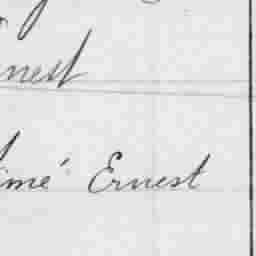 nest
imé Ernest